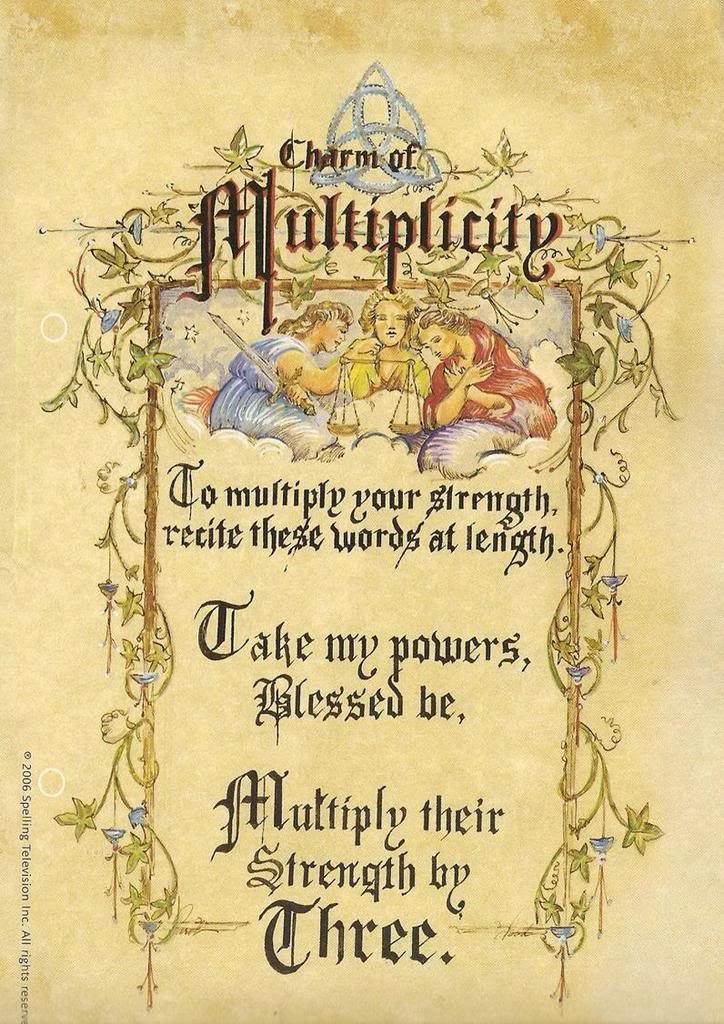 Charm of
Multiplicity
To multiply your strength,
recite these words at length.
Take my powers,
Blessed be,
Multiply their
Strength by
Three.
® 2006 Spelling Television Inc. All rights reserve